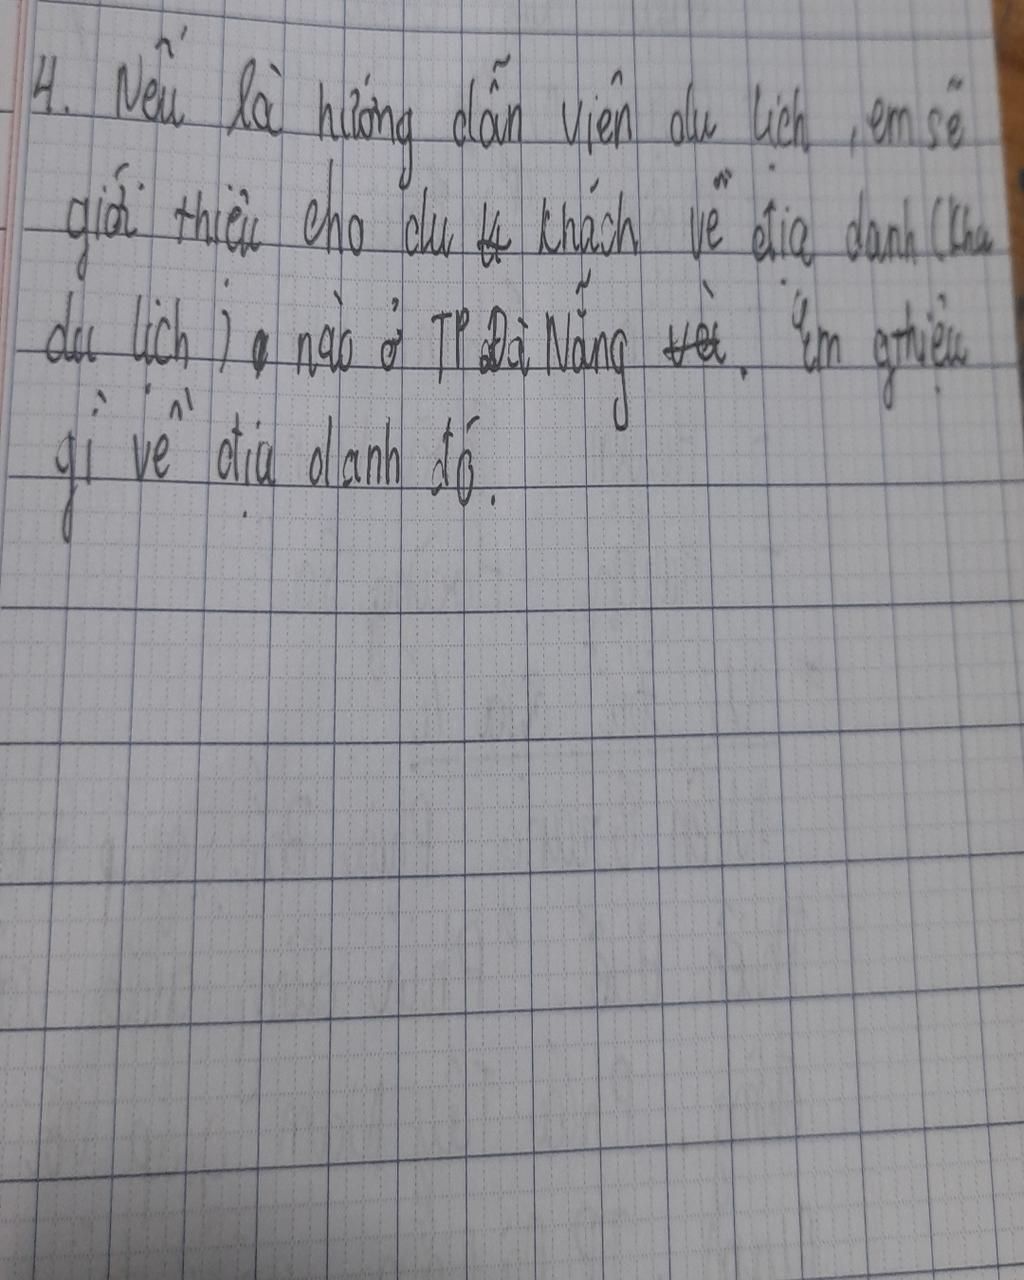 4. Nếu là hướng dẫn viên du lịch, em sẽ
giới thiệu cho du khách về địa danh (khu
du lịch) nào ở TP Đà Nẵng. Em gthiệu
gì về địa danh đó.